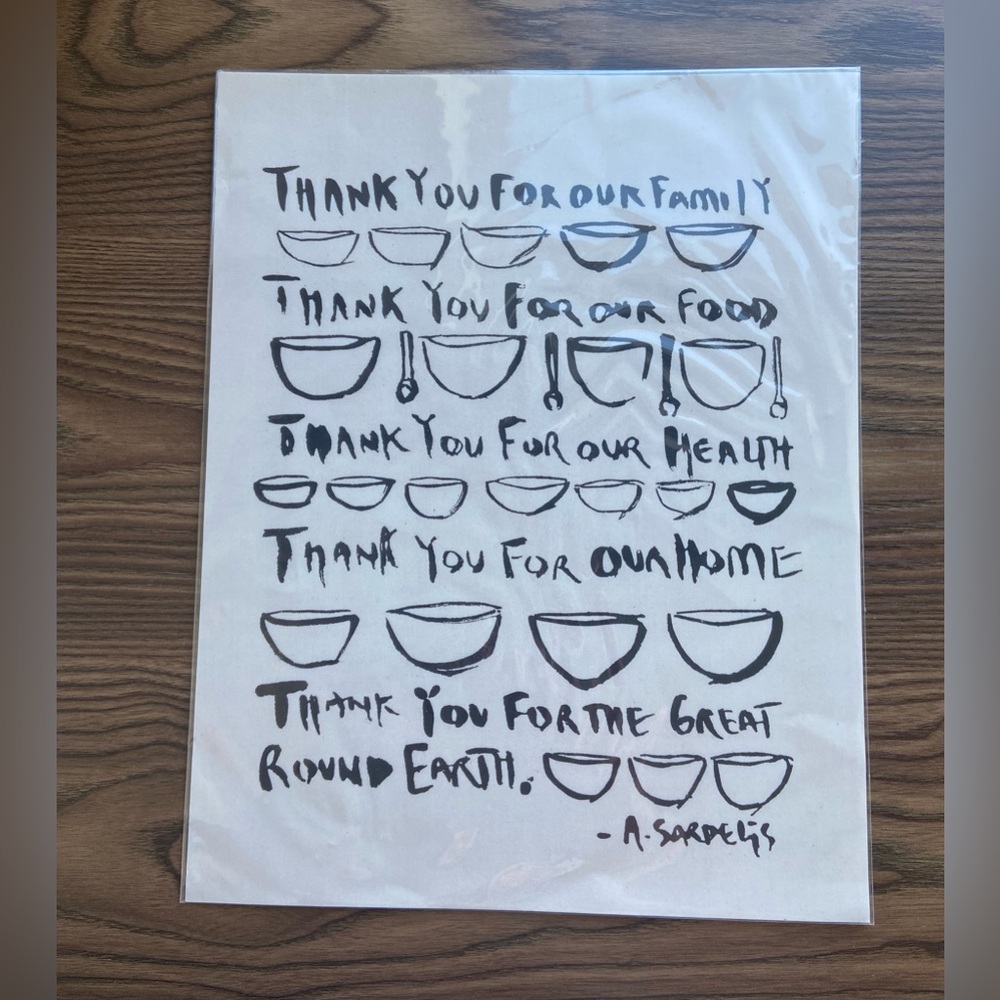 THANK YOU FOR OUR FAMILY
THANK YOU FOR OUR FOOD
THANK YOU FOR OUR HEALTH
THANK YOU FOR OUR HOME
THANK YOU FOR THE GREAT
ROUND EARTH.
- A. SARDELIS